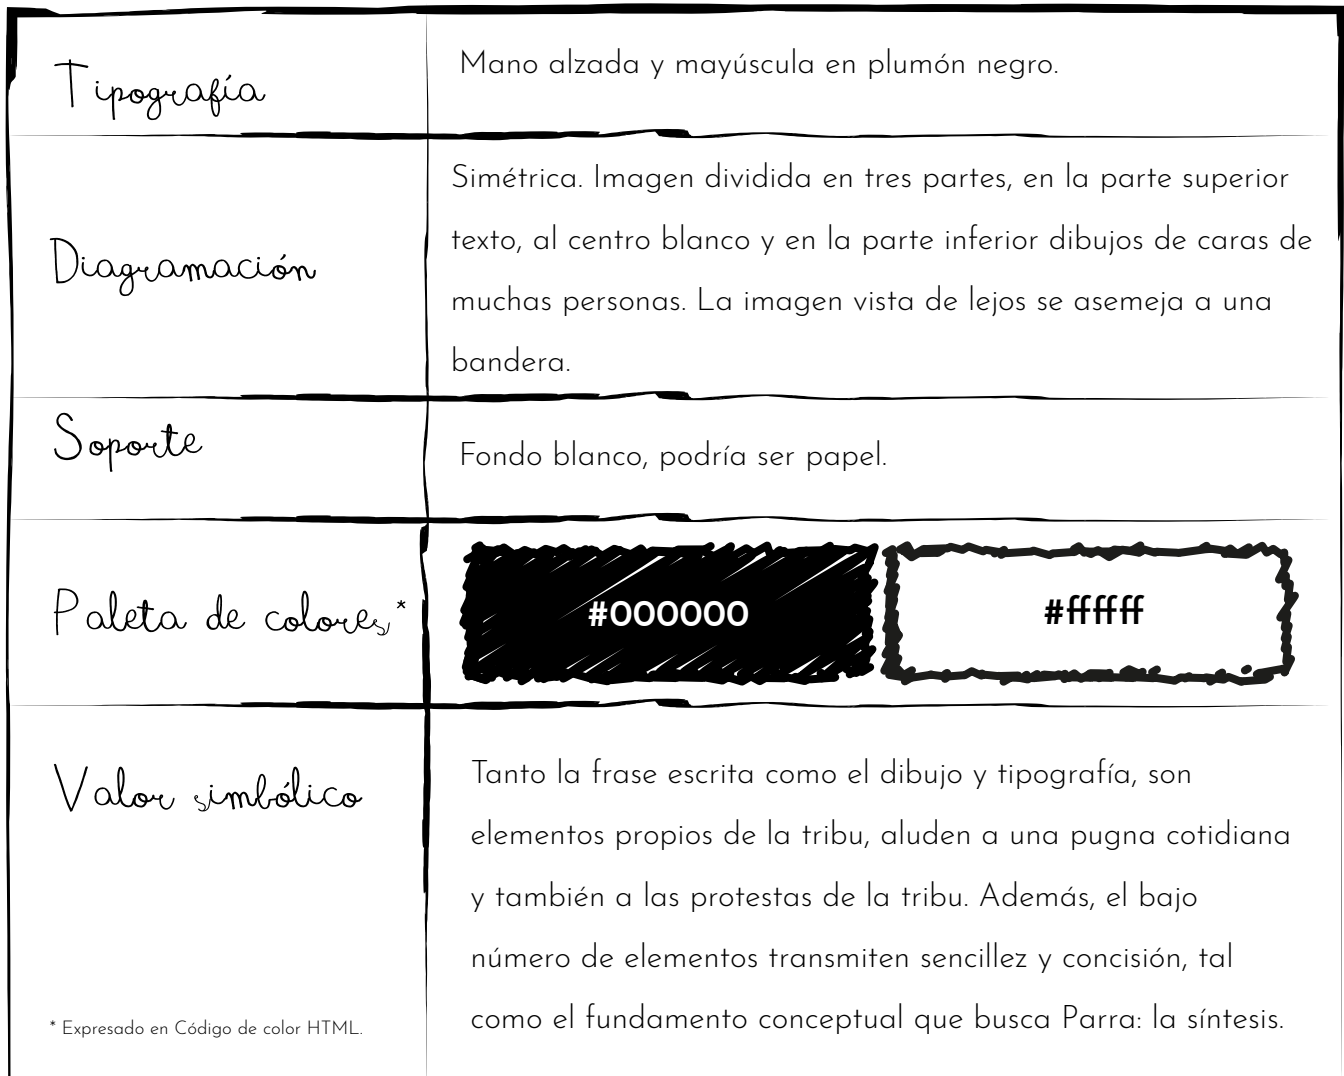 Tipografía
Mano alzada y mayúscula en plumón negro.
Diagramación
Simétrica. Imagen dividida en tres partes, en la parte superior
texto, al centro blanco y en la parte inferior dibujos de caras de
muchas personas. La imagen vista de lejos se asemeja a una
bandera.
Soporte
Fondo blanco, podría ser papel.
Paleta de colores*
#000000
#ffffff
Valor simbólico
Tanto la frase escrita como el dibujo y tipografía, son
elementos propios de la tribu, aluden a una pugna cotidiana
y también a las protestas de la tribu. Además, el bajo
número de elementos transmiten sencillez y concisión, tal
como el fundamento conceptual que busca Parra: la síntesis.
* Expresado en Código de color HTML.